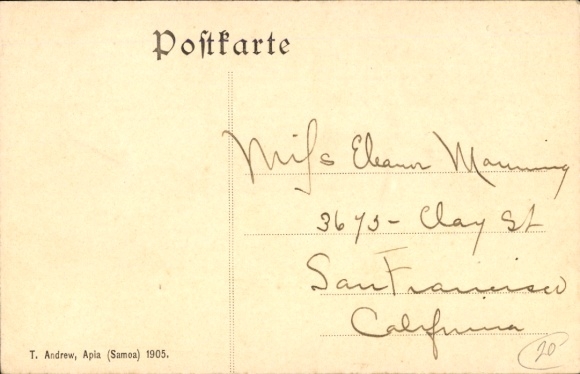 Postkarte
Miss Eleanor Manning
3675- Clay St
San Francisco
California
20
T. Andrew, Apia (Samoa) 1905.